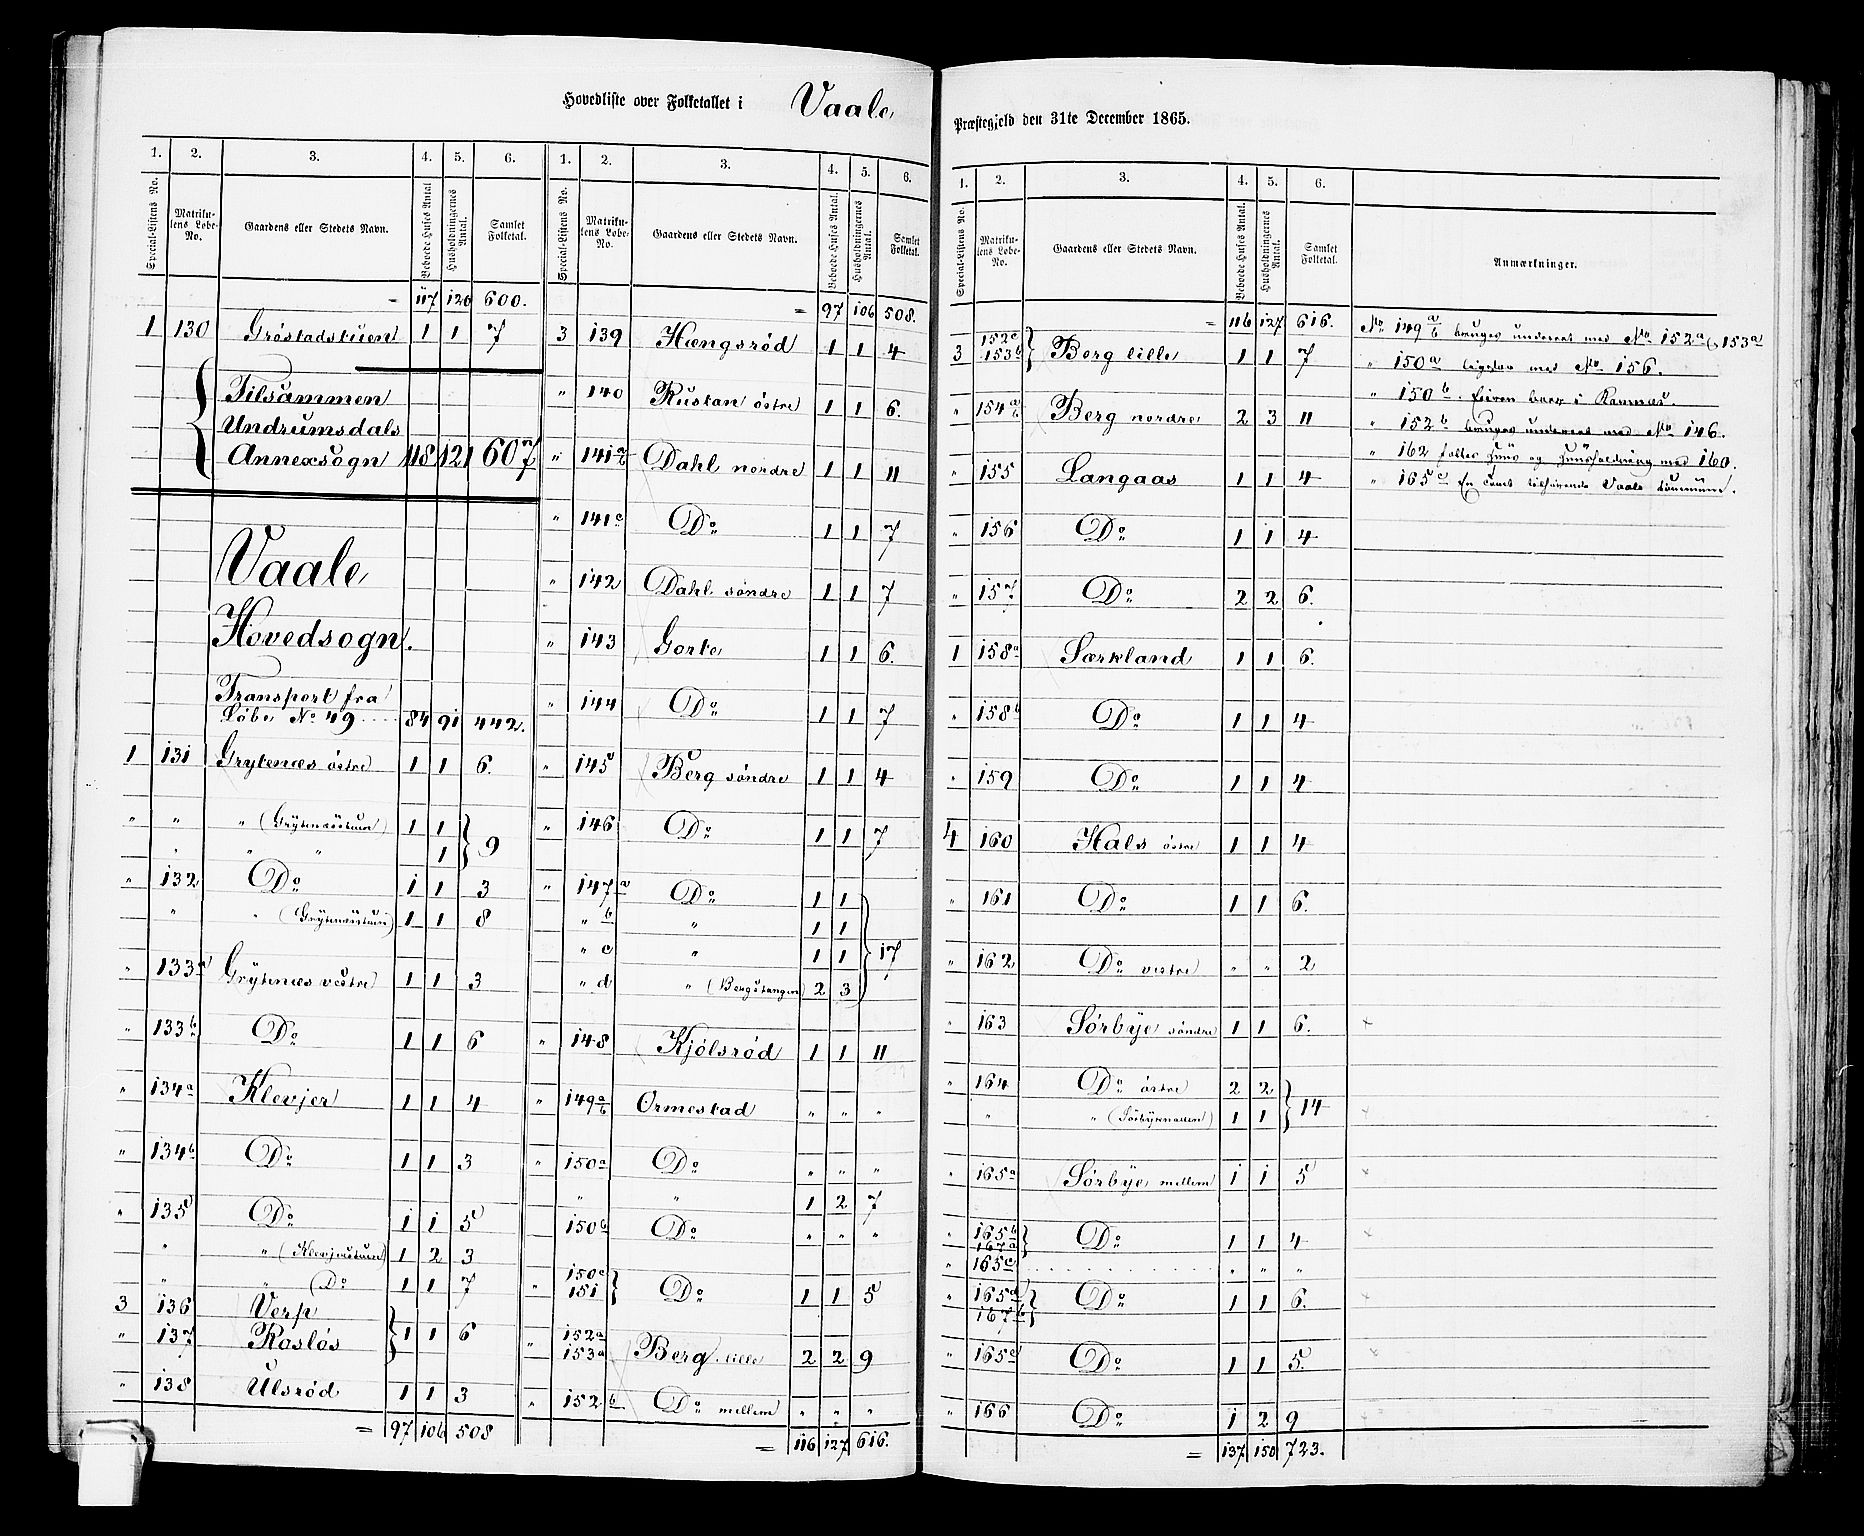 Hovedliste over Folketallet i Vaale
Præstegjeld den 31te December 1865.
1. 2. 3. 4. 5. 6.
Special-Listens No. Matriku-lens Løbe-No. Gaardens eller Stedets Navn. Beboede Huses Antal Husholdningernes Antal. Samlet Folketal.
= 117 120 600.
1 130 Gröstadstuen 1 1 7
Tilsammen
Undrumsdals
Annexsogn 118 121 607
Vaale
Hovedsogn.
Transport fra
Löbe No 49 84 91 442.
1 131 Grytenæs östre 1 1 6.
" " " (Grytenæsstuen) 1 1 } 9
" " " 1
" 132 Do 1 1 3
" " (Grytenæsstuen) 1 1 8
" 133a Grytenæs vestre 1 1 3
" 133b Do 1 1 6
" 134a Klevjer 1 1 4
" 134b Do 1 1 3
" 135 Do 1 1 5
" " (Klevjerstuen) 1 2 3
" " (Do 1 1 7
3 136 Verp
" 137 Rosløs } 1 1 6
" 138 Ulsröd 1 1 3
= 97 106 508
1. 2. 3. 4. 5. 6.
Special-Listens No. Matriku-lens Løbe-No. Gaardens eller Stedets Navn. Beboede Huses Antal. Husholdningernes Antal. Samlet Folketal.
= 97 106 508.
3 139 Hængsröd 1 1 4
" 140 Rustan östre 1 1 6.
" 141 Dahl nordre 1 1 11
" 141c Do 1 1 7
" 142 Dahl söndre 1 1 7
" 143 Gorte 1 1 6.
" 144 Do 1 1 7
" 145 Berg söndre 1 1 4
" 146 Do 1 1 7
" 147a Do 1 1
" b " 1 1
" c " 1 1 } 17
" d " (Bergstangen) 2 3
" 148 Kjölsröd 1 1 11
" 149a/b Ormestad " " "
" 150a Do " " "
" " 1 2 7
150b Do " " "
" 150c 151 } Do 1 1 5
" 152a 153a Berg lille 2 2 9
" 152b Do mellem " " "
= 116 127 616.
1. 2. 3. 4. 5. 6.
Special-Listens No. Matriku-lens Løbe-No. Gaardens eller Stedets Navn. Beboede Huses Antal. Husholdningernes Antal. Samlet Folketal. Anmærkninger.
= 116 127 616.
3 152c 153b } Berg lille 1 1 7
" 154a/b Berg nordre 2 3 11
" 155 Langaas 1 1 4
" 156 Do 1 1 4
" 157 Do 2 2 6.
1 158a Særkland 1 1 6.
" 158b Do 1 1 4
" 159 Do 1 1 4
4 160 Hals östre 1 1 4
" 161 Do 1 1 6.
" 162 Do vestre " " 2
" 163 Sörbÿe söndre 1 1 6.
" 164 Do östre 2 2 } 14
" " 1 1
" 165a Sörbÿe mellem 1 1 5
" 165b 167a } Do 1 1 4
" 165c " " "
" 165d 167b } Do 1 1 6.
" 165 Do 1 1 5.
" 166 Do 1 2 9
= 137 150 723.
No 149a/b bruges underet med No 152a, 153a
" 150a ligeder med No 156.
" 150b. Eieren boer i Ramnæs.
" 152b bruges underet med No 146.
" 162 fælles Huus og Huusholdning med 160.
" 165c En tomt tilhörende Vaale Commune.